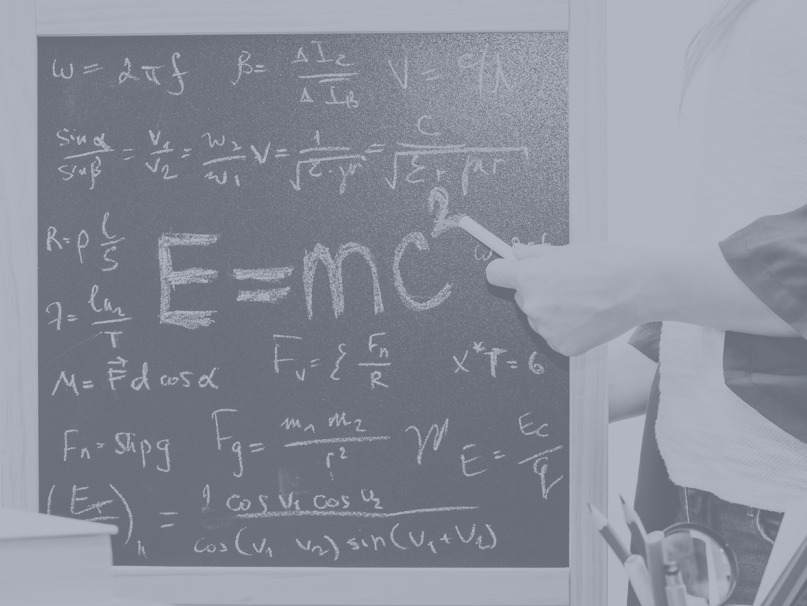 ω = 2πf β = ΔI₂/ΔI_B V = c/λ
sinα/sinβ = v₁/v₂ = w₂/w₁ V = 1/√ε·μ = c/√εr√μr
R = ρ l/S
E = mc²
λ = ln₂/T
F_v = { F_n/R x*T = 6
M = F⃗ d cos α
F_n = Shρg F_g = m₁ m₂/r² E = Ec/q
(E_t/ )_h = 2 cos v₁ cos v₂/cos(v₁ v₂) sin(v₁+v₂)